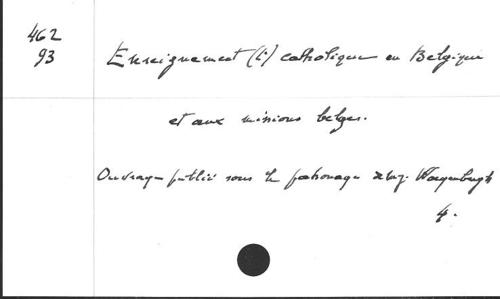 462
93
Enseignement (l') catholique en Belgique
et aux missions belges.
Ouvrage publié sous le patronage de Mgr. Waeyenbergh
4.